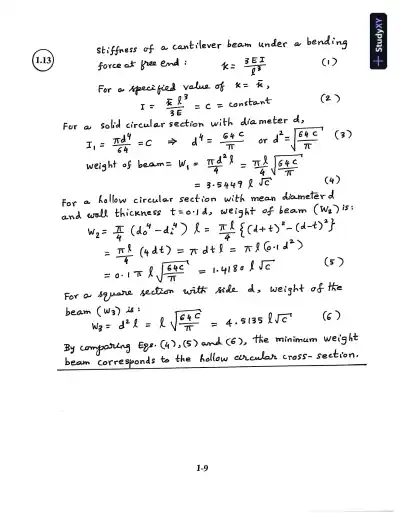 StudyXY
1.13
Stiffness of a cantilever beam under a bending
force at free end : k = 3EI / l³ (1)
For a specified value of k = k̄,
I = k̄ l³ / 3E = C = constant (2)
For a solid circular section with diameter d,
I₁ = πd⁴/64 = C ⇒ d⁴ = 64C/π or d² = √(64C/π) (3)
Weight of beam = W₁ = πd²/4 l = πl/4 √(64C/π)
= 3.5449 l √C (4)
For a hollow circular section with mean diameter d
and wall thickness t = 0.1d, weight of beam (W₂) is:
W₂ = π/4 (d₀⁴ - dᵢ⁴) l = πl/4 {(d+t)² - (d-t)²}
= πl/4 (4dt) = π d t l = π l (0.1 d²)
= 0.1 π l √(64C/π) = 1.4180 l √C (5)
For a square section with side d, weight of the
beam (W₃) is:
W₃ = d² l = l √(64C/π) = 4.5135 l √C (6)
By comparing Eqs. (4), (5) and (6), the minimum weight
beam corresponds to the hollow circular cross-section.
1-9